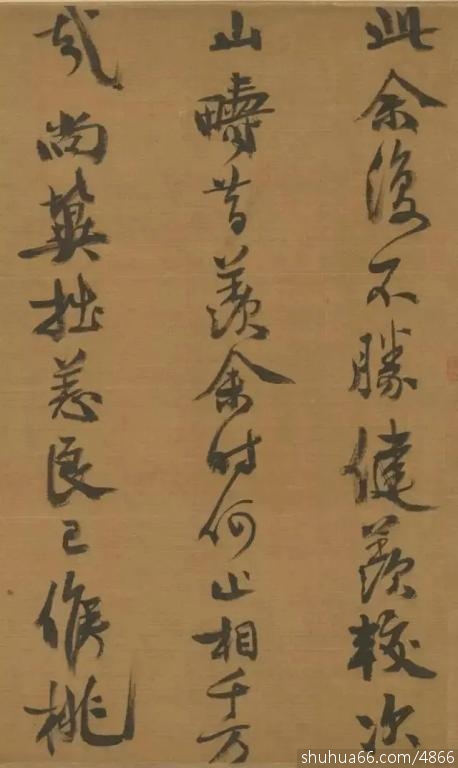 此余復不勝健羨較次
山疇昔羨余時何止相千万
哉尚冀拙恙良已偹桃
shuhua66.com/4866